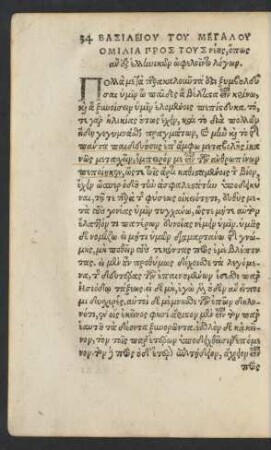 34 ΒΑΣΙΛΕΙΟΥ ΤΟΥ ΜΕΓΑΛΟΥ
ΟΜΙΛΙΑ ΠΡΟΣ ΤΟΥΣ νέους, ὅπως
ἂν ἐξ ἑλληνικῶν ὠφελοῖντο λόγων.
Πολλά με τὰ παρακαλοῦντά ἐστι ξυμβουλεῦ
σαι ὑμῖν ὦ παῖδες ἃ βέλτιστα εἶναι κρίνω,
καὶ ἃ ξυνοίσειν ὑμῖν ἑλομένοις πεπίστευκα. τό,
τε γὰρ ἡλικίας οὕτως ἔχειν, καὶ τὸ διὰ πολλῶν
ἤδη γεγυμνάσθαι πραγμάτων, καὶ μὴν καὶ τὸ τῆς
πάντα παιδευούσης ἐπ' ἄμφω μεταβολῆς ἱκα
νῶς μετασχεῖν, ἔμπειρόν με εἶναι τῶν ἀνθρωπίνων
πεποίηκεν, ὥστε τοῖς ἄρτι καθισταμένοις τὸν βίον,
ἔχειν ὥσπερ ὁδῶν τὴν ἀσφαλεστάτην ὑποδεικνύ
ναι, τῇ τε παρὰ τῆς φύσεως οἰκειότητι, εὐθὺς με
τὰ τοὺς γονέας ὑμῖν τυγχάνω, ὥστε μήτ' αὐτὸν
ἔλαττόν τι πατέρων εὐνοίας νέμειν ὑμῖν. ὑμᾶς
δὲ νομίζω εἰ μή τι ὑμῶν διαμαρτάνω τῆς γνώ
μης, μὴ ποθεῖν τοὺς τεκόντας πρὸς ἐμὲ βλέπον
τας. εἰ μὲν οὖν προθύμως δέχοισθε τὰ λεγόμε
να, τῆς δευτέρας τῶν ἐπαινουμένων ἔσεσθε παρ'
ἡσιόδῳ τάξεως· εἰ δὲ μὴ, ἐγὼ μὲν οὐδὲν ἂν εἴποι
μι δυσχερὲς, αὐτοὶ δὲ μέμνησθε τῶν ἐπῶν δηλο
νότι, ἐν οἷς ἐκεῖνός φησι ἄριστον μὲν εἶναι τὸν παρ'
ἑαυτοῦ τὰ δέοντα ξυνορῶντα. ἐσθλὸν δὲ κἀκεῖ
νον, τὸν τοῖς παρ' ἑτέρων ὑποδειχθεῖσιν ἑπόμε
νον. τὸν δὲ πρὸς οὐδέτερον ἐπιτήδειον, ἀχρεῖον εἶναι
πρὸς